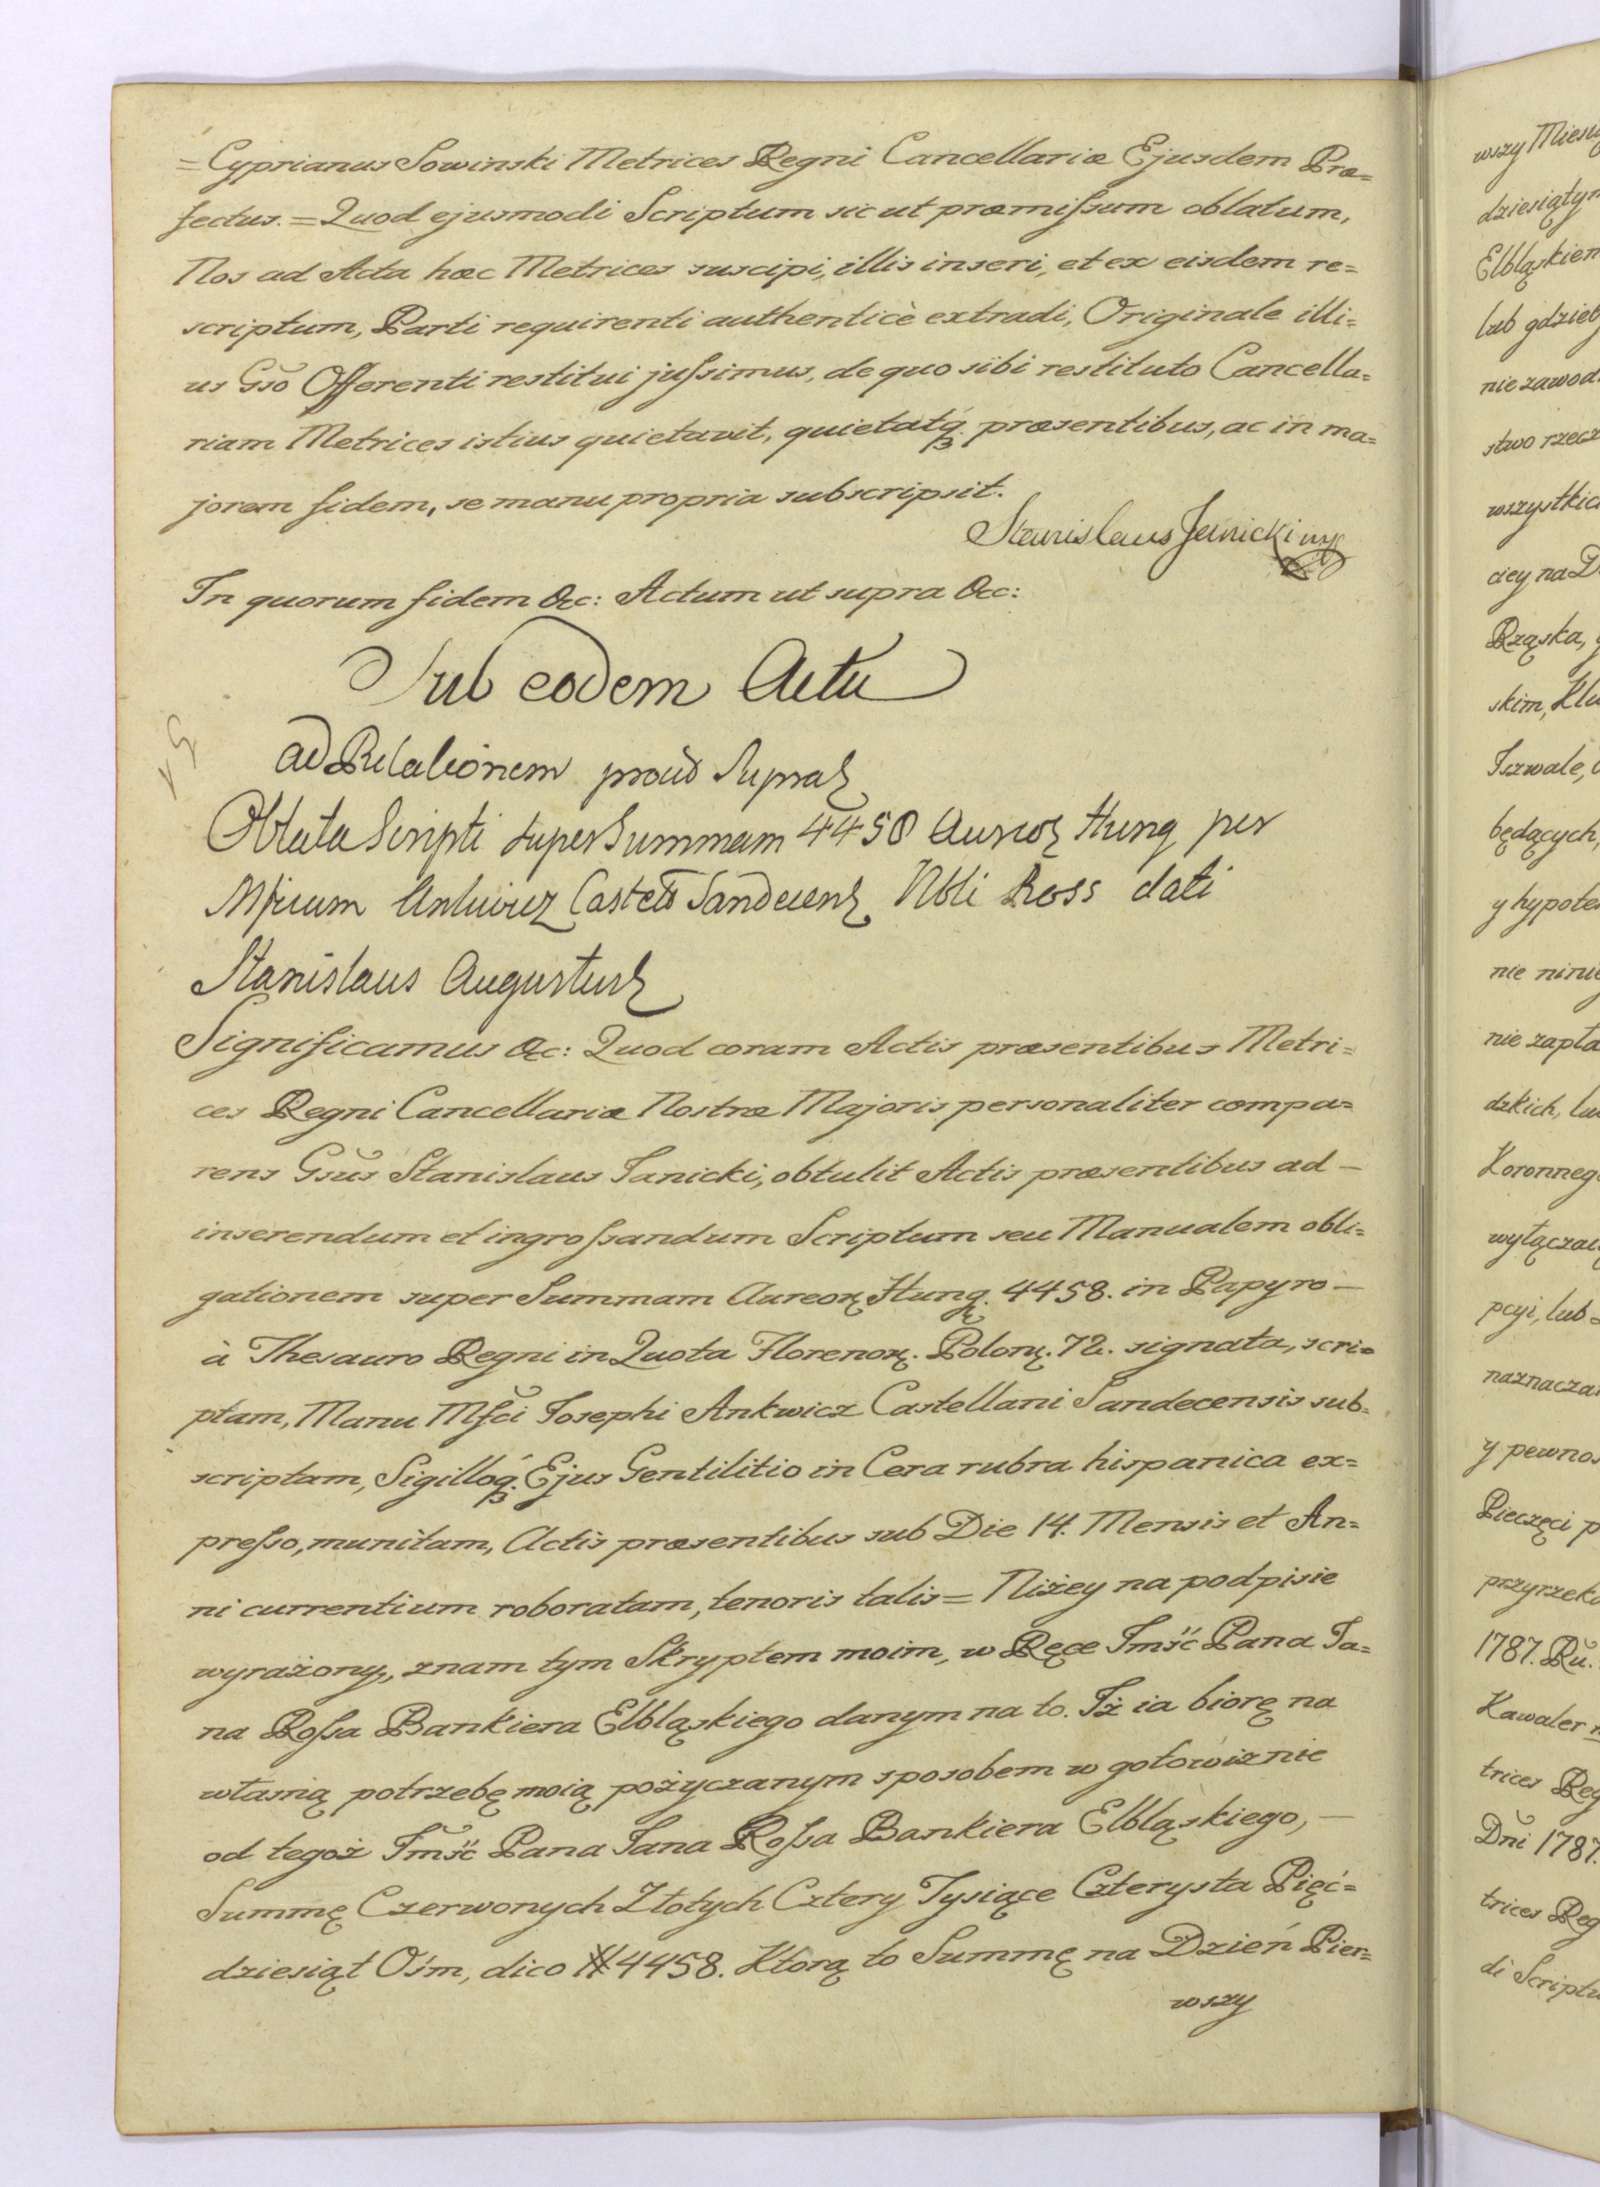 =Cyprianus Sowinski Metrices Regni Cancellariæ Ejusdem Præ=
fectus.=Quod ejusmodi Scriptum sic ut præmissum oblatum,
Nos ad Acta hæc Metrices suscipi, illis inseri, et ex eisdem re=
scriptum, Parti requirenti authenticè extradi, Originale illi=
us Gso Offerenti restitui jussimus, de quo sibi restituto Cancella=
riam Metrices istius quietavit, quietatq præsentibus, ac in ma=
jorem fidem, se manu propria subscripsit.
Stanislaus Janicki mp
In quorum fidem &c: Actum ut supra &c:
Sub eodem Actu
ad Relationem proud Supra
Oblata Scripti super Summam 4458 Aureor Hung per
Mficum Ankwicz Castell Sandecens Nbli Ross dati
Stanislaus Augustus
Significamus &c: Quod coram Actis præsentibus Metri=
ces Regni Cancellariæ Nostræ Majoris personaliter compa=
rens Gsus Stanislaus Janicki, obtulit Actis præsentibus ad—
inserendum et ingrossandum Scriptum seu Manualem obli=
gationem super Summam Aureor Hung. 4458. in Papyro—
à Thesauro Regni in Quota Florenor. Polon. 72. signata, scri=
ptam, Manu Mfci Josephi Ankwicz Castellani Sandecensis sub=
scriptam, Sigilloq. Ejus Gentilitio in Cera rubra hispanica ex=
presso, munitam, Actis præsentibus sub Die 14. Mensis et An=
ni currentium roboratam, tenoris talis= Niżey na podpisie
wyrażony, znam tym Skryptem moim, w Ręce Jmść Pana Ja=
na Rossa Bankiera Elbląskiego danym na to. Iż ia biorę na
własną potrzebę moią pożyczanym sposobem w gotowiznie
od tegoż Jmść Pana Jana Rossa Bankiera Elbląskiego,—
Summę Czerwonych Złotych Cztery Tysiące Czterysta Pięć=
dziesiąt Ośm, dico # 4458. Ktorą to Summę na Dzień Pier=
wszy
wszy
dziesiąty
Elbląskiem
lub gdzie
nie zawod
stwo rzecz
wszystkic
ciey na D
Rząska,
skim, Klu
będących,
y hypote
nie
nie zapła
dzkich, lu
Koronneg
wyłącza
pcyi, lub
naznacza
y pewnos
Pieczęci p
przyrzeka
1787. Ru.
Kawaler
trices Reg
Dni 1787.
trices Reg
di Scriptu